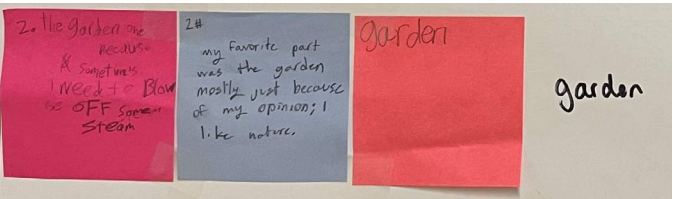 2. The garden one
because
sometimes
I need to Blow
OFF some
steam
2#
my favorite part
was the garden
mostly just because
of my opinion; I
like nature.
garden
garden